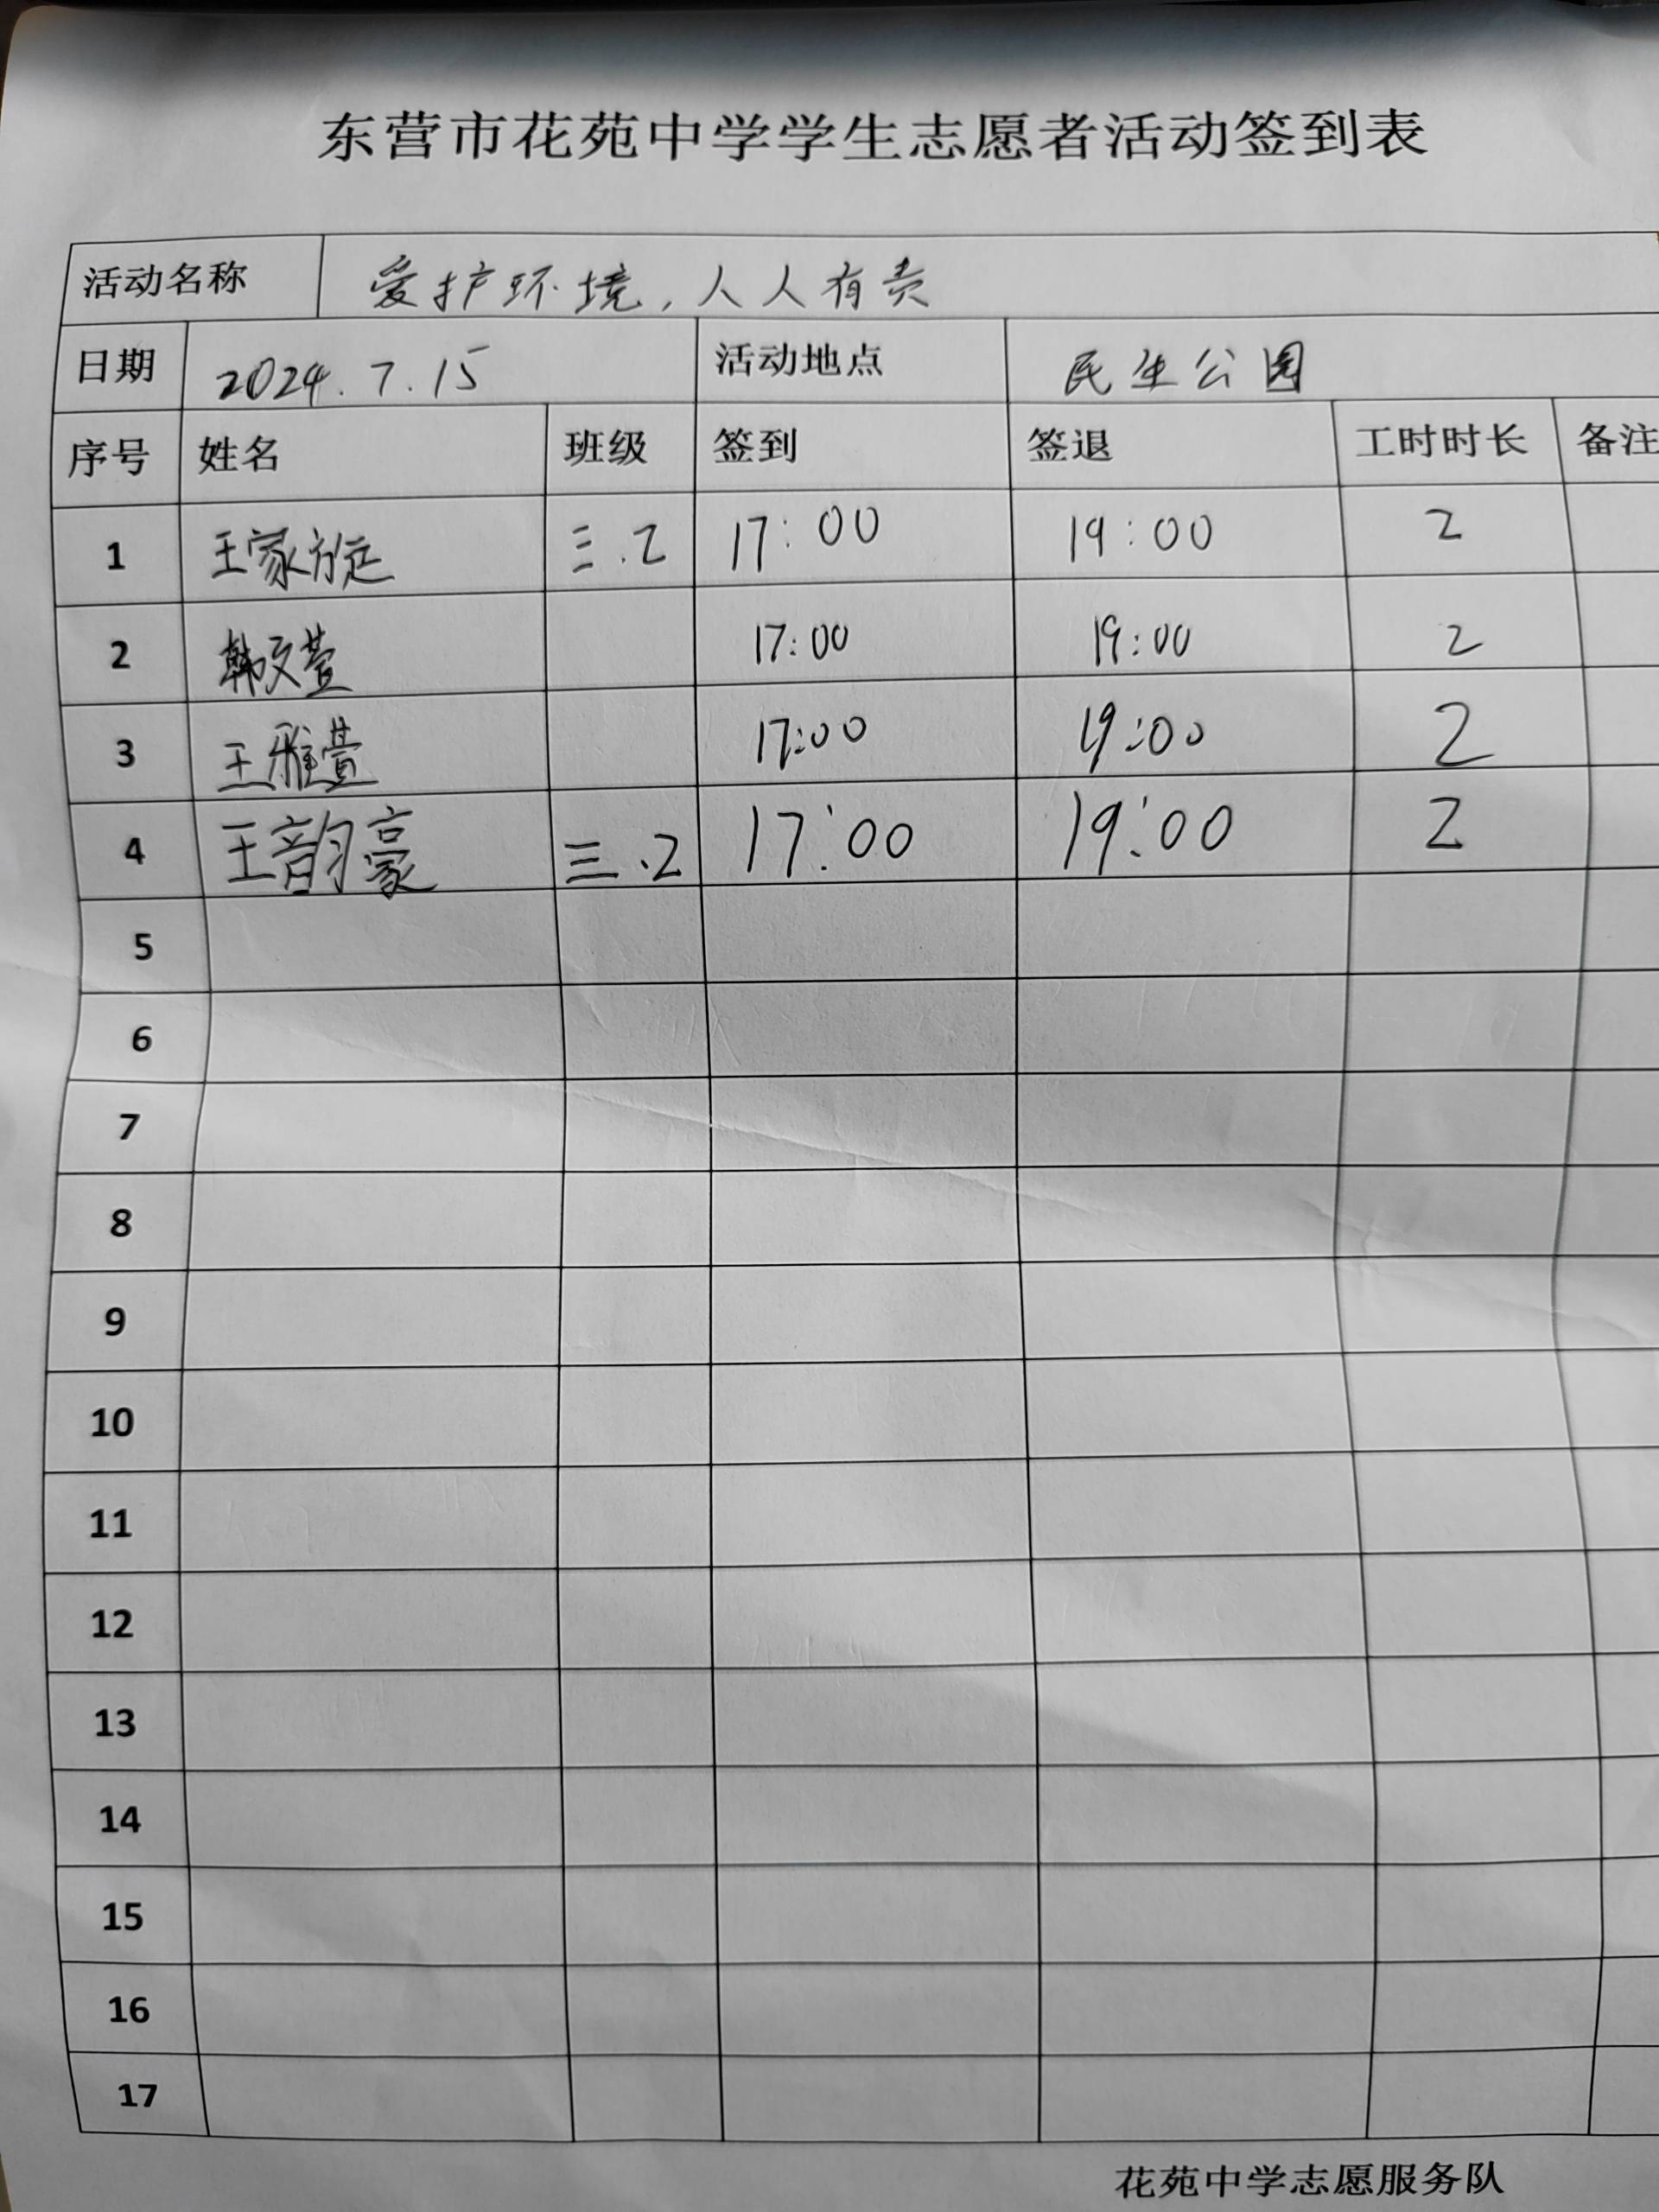 东营市花苑中学学生志愿者活动签到表
活动名称 爱护环境,人人有责
日期 2024.7.15 活动地点 民生公园
序号 姓名 班级 签到 签退 工时时长 备注
1 王家 三.2 17:00 19:00 2
2 韩文萱 17:00 19:00 2
3 王雅萱 17:00 19:00 2
4 王韵豪 三.2 17:00 19:00 2
5
6
7
8
9
10
11
12
13
14
15
16
17
花苑中学志愿服务队